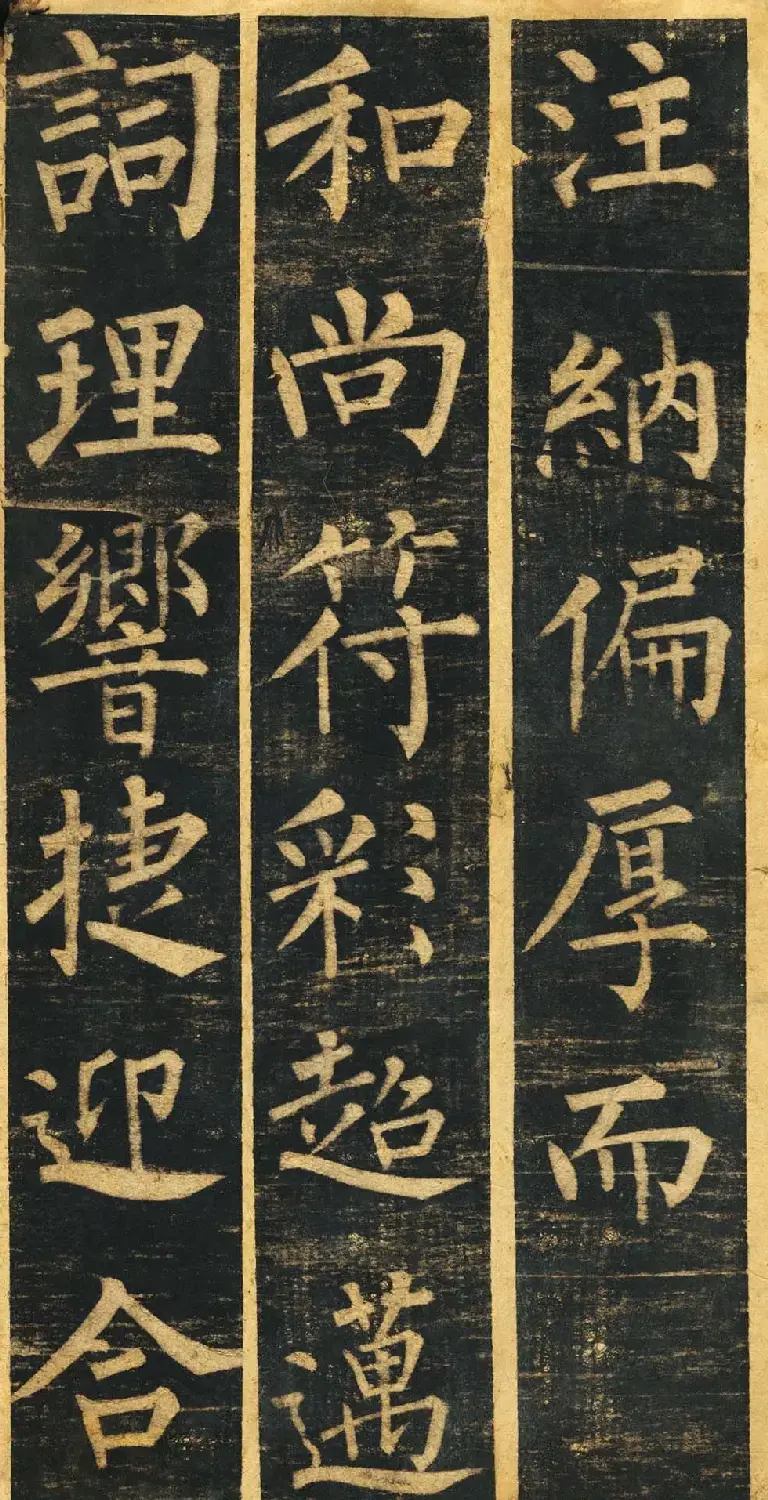 注納偏厚而
和尚符彩超邁
詞理響捷迎合